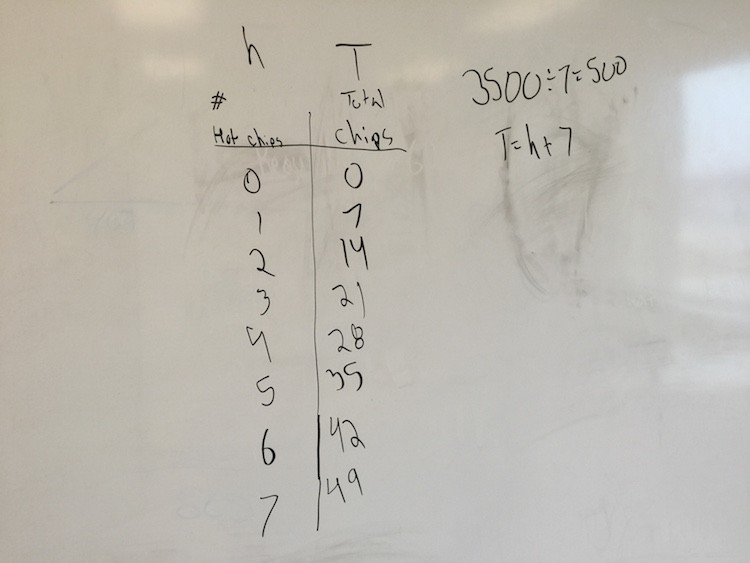 h T
# Total
Hot chips chips
0 0
1 7
2 14
3 21
4 28
5 35
6 42
7 49
3500÷7=500
T=h+7